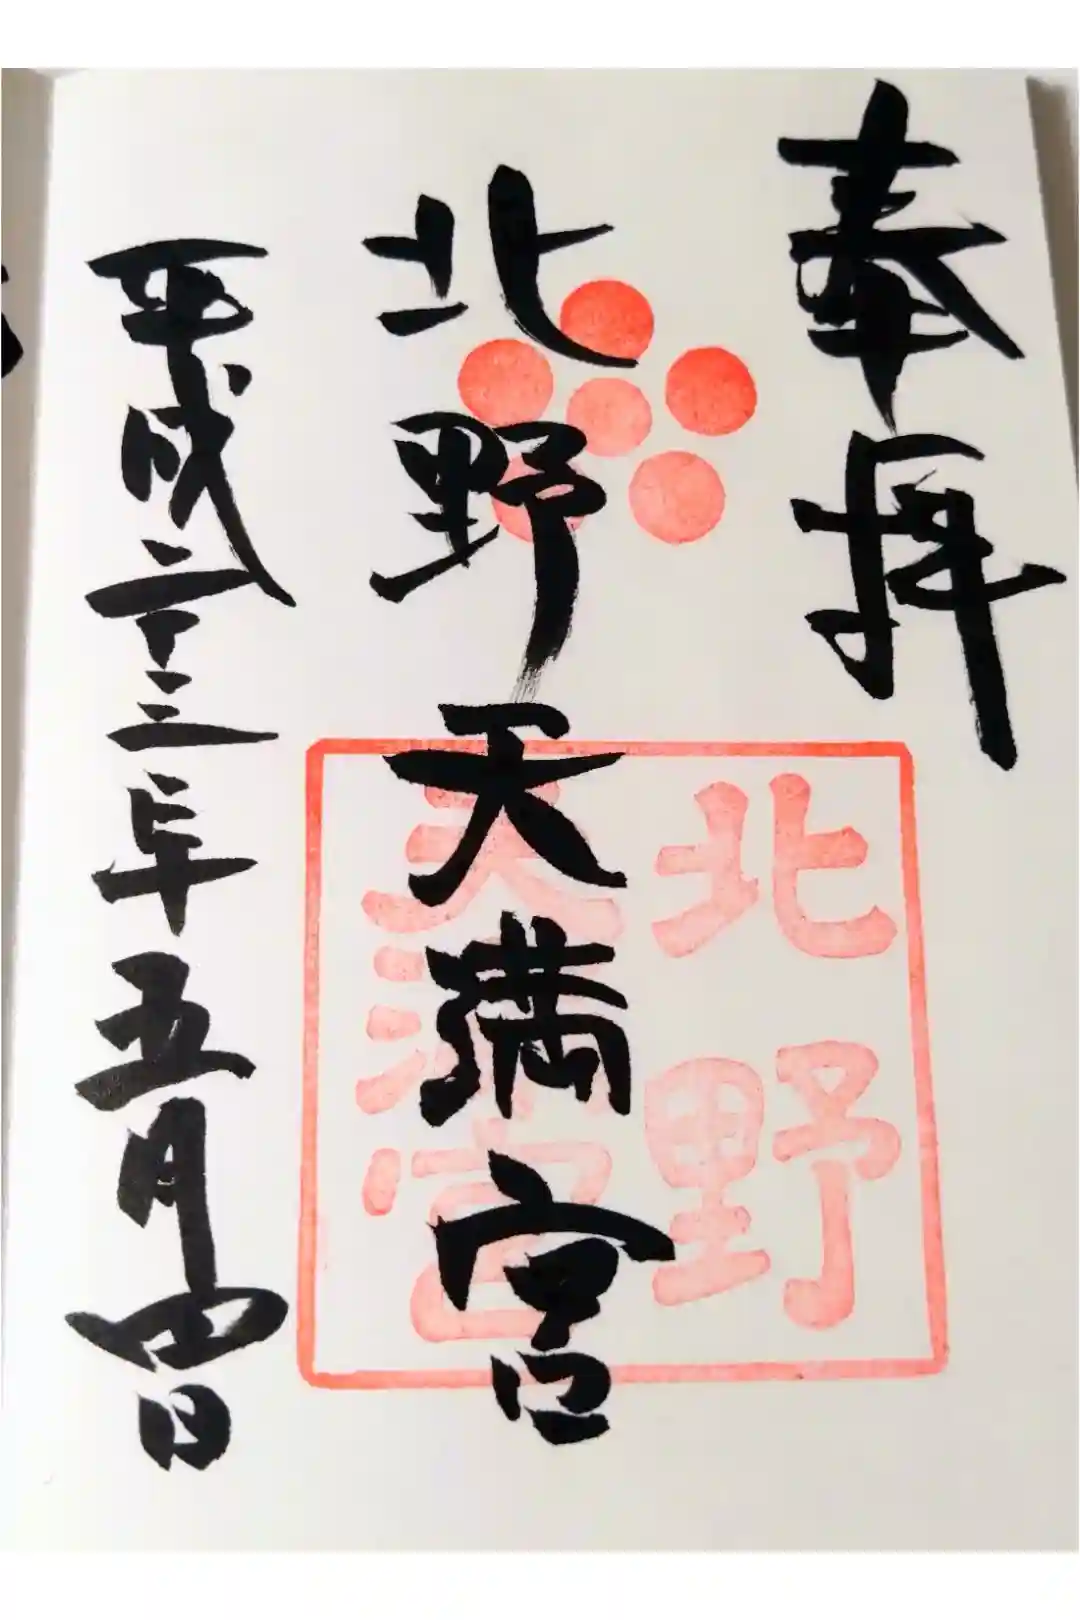 奉拝
北野天満宮
平成二十三年五月四日
北野
天満宮